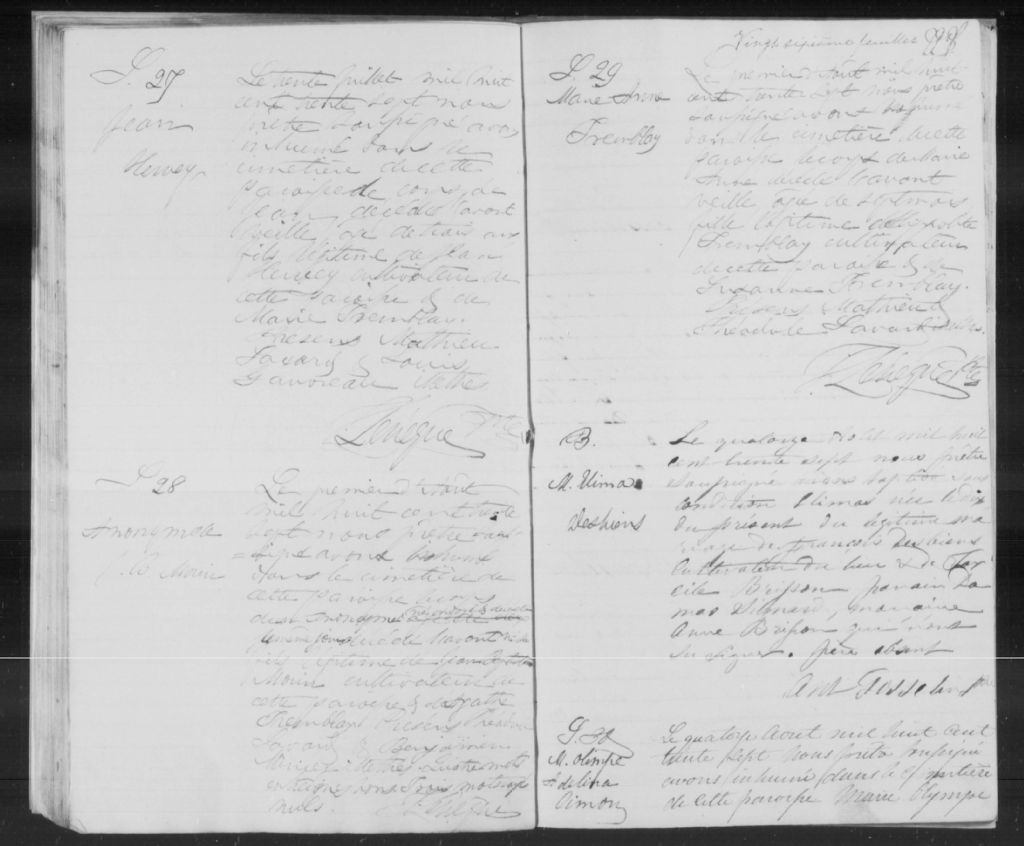 S. 27
Jean
Hervey
Le trente Juillet mil huit
cent trente Sept nous
prêtre soussigné avons
inhumé dans le
cimetière de cette
paroisse le corps de
Jean décédé l'avant
veille âgé de trois ans
fils légitime de Jean
Hervey cultivateur de
cette paroisse & de
Marie Tremblay.
Présens Mathieu
Savard & Louis
Gauvreau
Levêque Ptre
S. 28
Anonyme
Morin
Le premier d'Août
mil huit cent trente
sept nous prêtre sous-
avons inhumé
dans le cimetière de
cette paroisse le corps
d'un anonyme
décédé l'avant veille
fils légitime de Jean Baptiste
Morin cultivateur de
cette paroisse & de
Tremblay Présens
Savard & Benjamin
mots
trois mots
nuls.
Levêque
Vingt sixième feuillet
S. 29
Marie Anne
Tremblay
Le premier d'Août mil huit
cent trente Sept nous prêtre
soussigné avons inhumé
dans le cimetière de cette
paroisse le corps de Marie
Anne décédé l'avant
veille âgé de sept mois
fille légitime de
Tremblay cultivateur
de cette paroisse & de
Suzanne Tremblay.
Présens Mathieu &
Théodule Savard
Levêque Ptre
B.
M. Elima
Desbiens
Le quatorze d'Août mil huit
cent trente sept nous prêtre
soussigné avons baptisé sous
condition Elima née le dix
du présent du légitime ma
riage de François Desbiens
Cultivateur du lieu & de
Brisson parain
marraine
Anne Brisson qui n'ont
su signer. père absent
Ant Gosselin Ptre
S. 30
M. olimpe
Adelina
Simon
Le quatorze Aout mil huit cent
trente sept nous pretre soussigné
avons inhumé dans le cimetière
de cette paroisse Marie Olympe